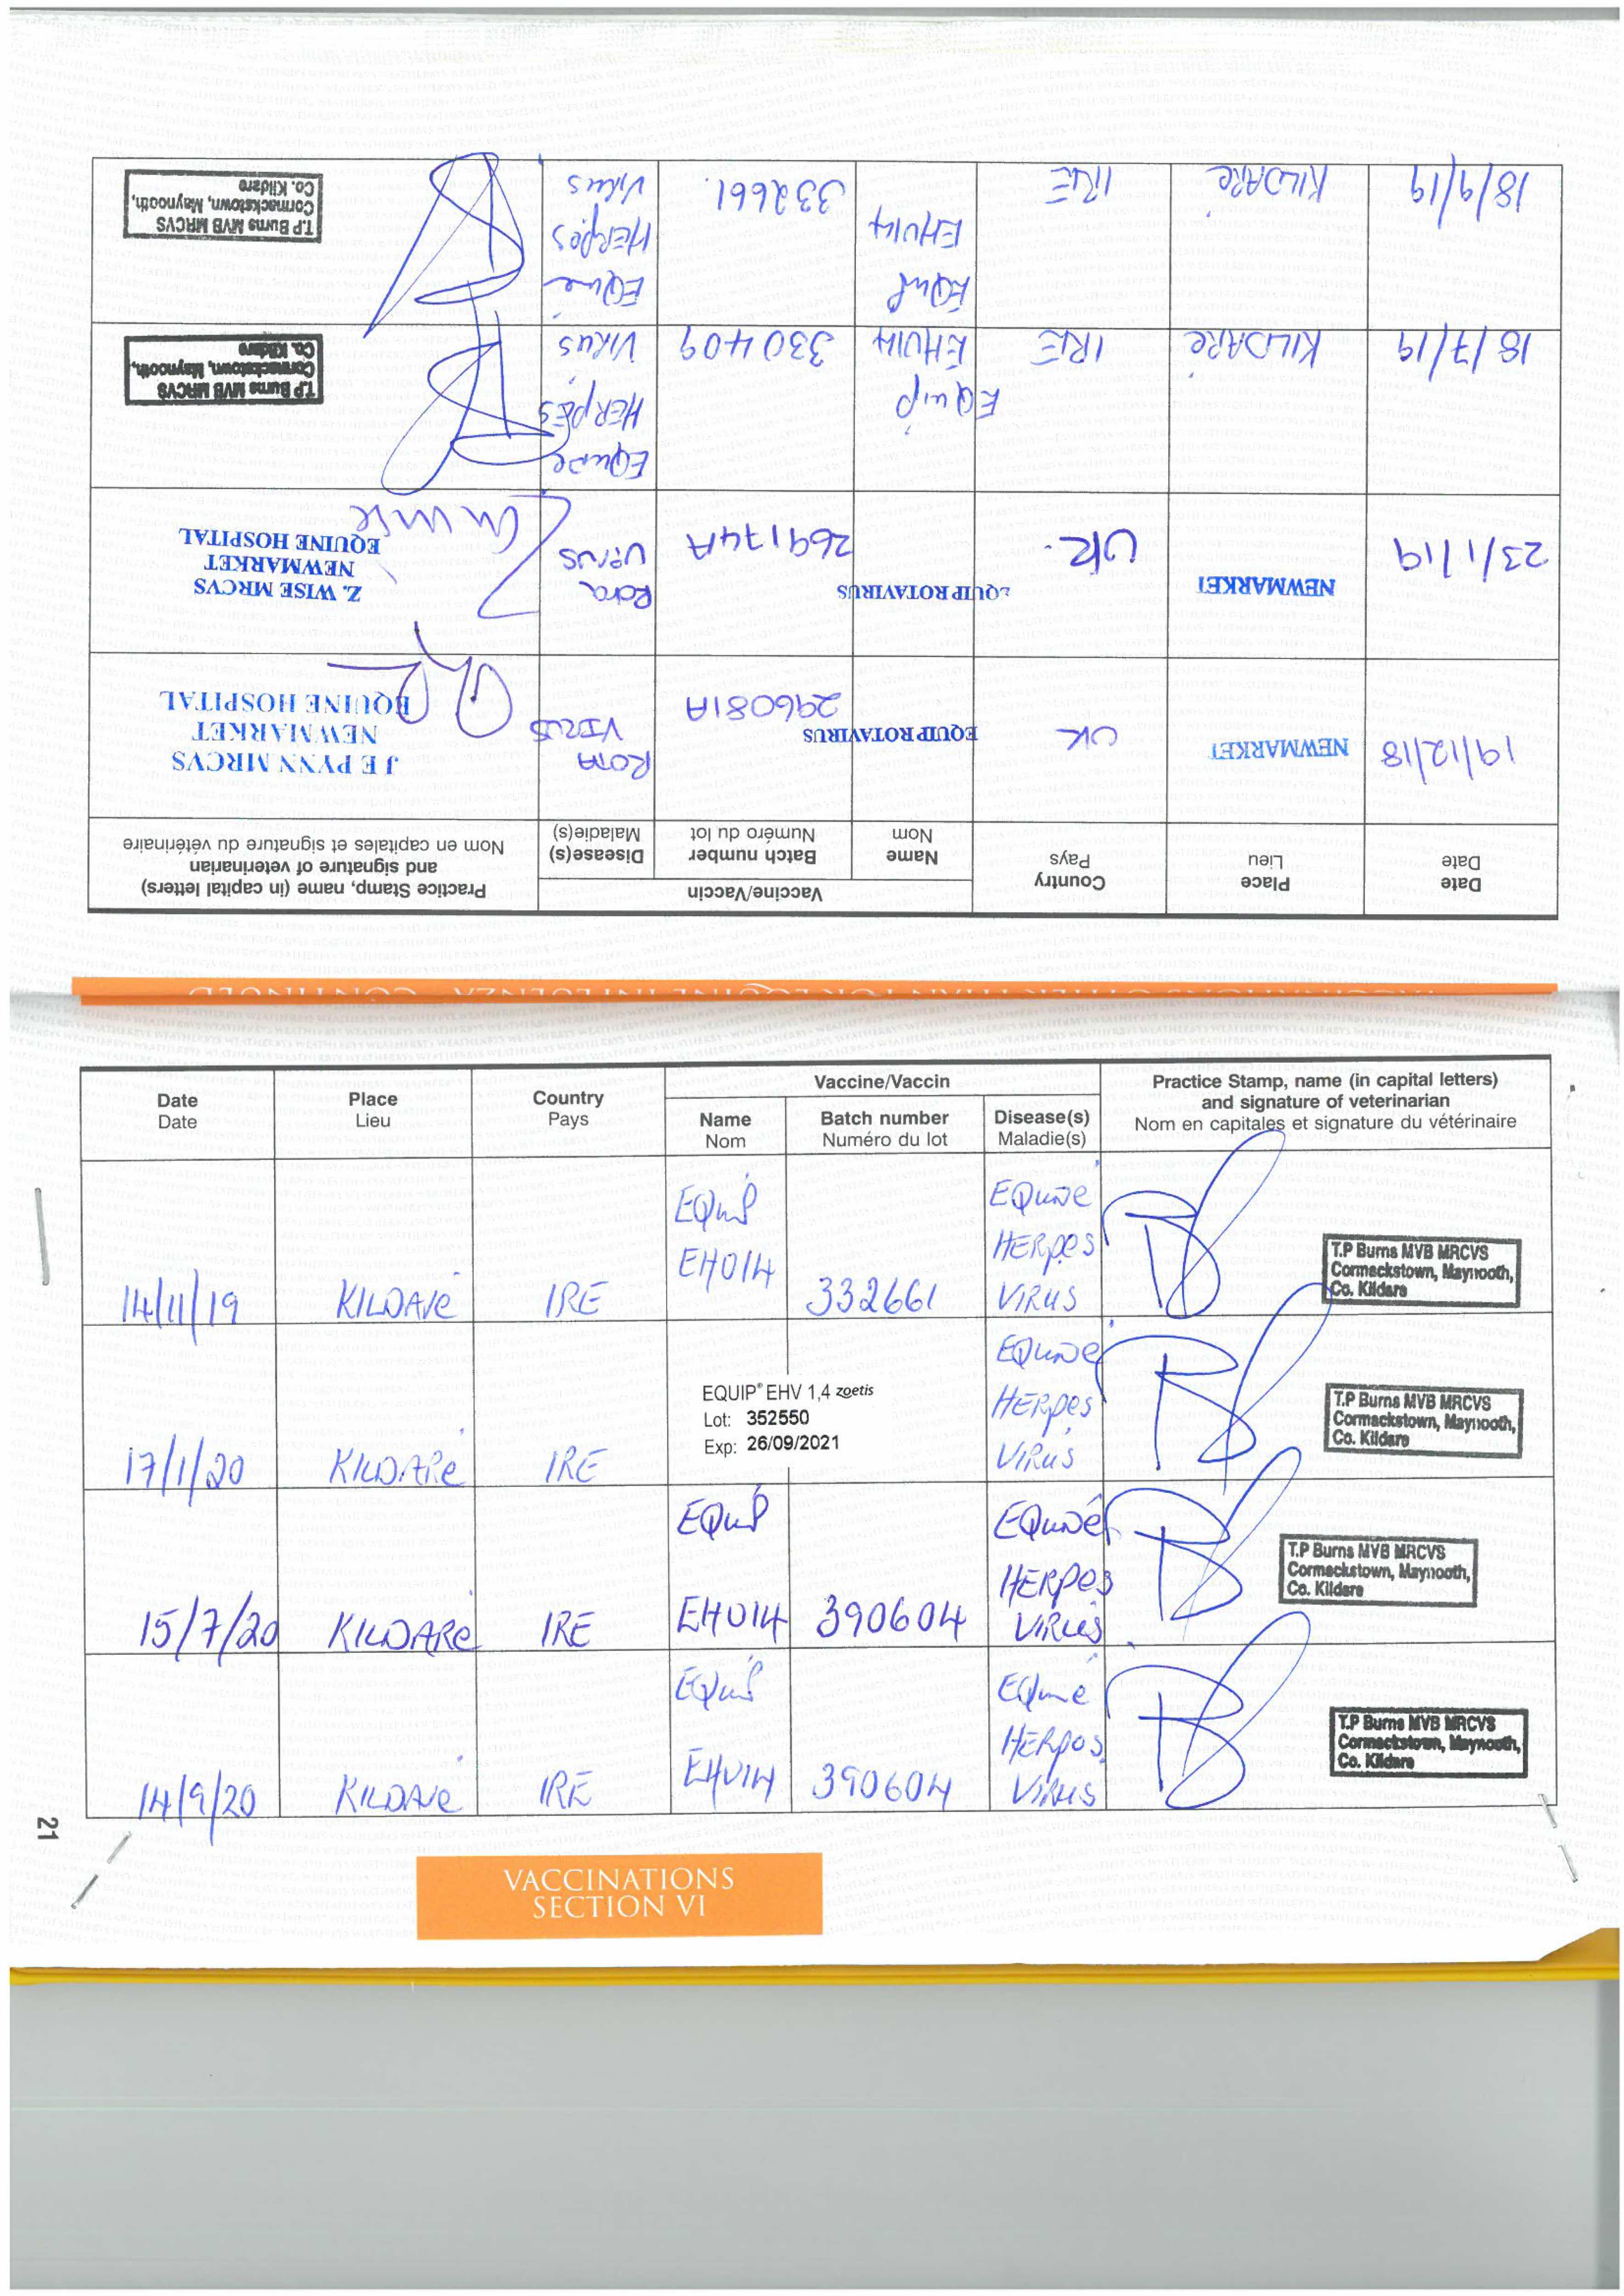 Date
Date
Place
Lieu
Country
Pays
Vaccine/Vaccin
Name
Nom
Batch number
Numéro du lot
Disease(s)
Maladie(s)
Practice Stamp, name (in capital letters)
and signature of veterinarian
Nom en capitales et signature du vétérinaire
19/12/18 NEWMARKET UK EQUIP ROTAVIRUS 296081A ROTA
VIRUS
J E PYNN MRCVS
NEWMARKET
EQUINE HOSPITAL
23/1/19 NEWMARKET UK. EQUIP ROTAVIRUS 269174A Rota
Virus
Z. WISE MRCVS
NEWMARKET
EQUINE HOSPITAL
18/7/19 KILDARE IRE Equip
EHV14 330409 Equine
HERPES
VIRUS
T.P Burns MVB MRCVS
Cormackstown, Maynooth,
Co. Kildare
18/9/19 KILDARE IRE EQuip
EHV14 332661. EQuine
HERPES
VIRUS
T.P Burns MVB MRCVS
Cormackstown, Maynooth,
Co. Kildare
Date
Date
Place
Lieu
Country
Pays
Vaccine/Vaccin
Name
Nom
Batch number
Numéro du lot
Disease(s)
Maladie(s)
Practice Stamp, name (in capital letters)
and signature of veterinarian
Nom en capitales et signature du vétérinaire
14/11/19 KILDARE IRE EQuip
EHV14 332661 EQuine
HERPES
VIRUS
T.P Burns MVB MRCVS
Cormackstown, Maynooth,
Co. Kildare
17/1/20 KILDARE IRE
EQUIP® EHV 1,4 zoetis
Lot: 352550
Exp: 26/09/2021
EQuine
HERpes
VIRUS
T.P Burns MVB MRCVS
Cormackstown, Maynooth,
Co. Kildare
15/7/20 KILDARE IRE EQuip
EHV14 390604 EQuine
HERPes
VIRUS
T.P Burns MVB MRCVS
Cormackstown, Maynooth,
Co. Kildare
14/9/20 KILDARE IRE EQuip
EHV14 390604 EQuine
HERpes
VIRUS
T.P Burns MVB MRCVS
Cormackstown, Maynooth,
Co. Kildare
21
VACCINATIONS
SECTION VI